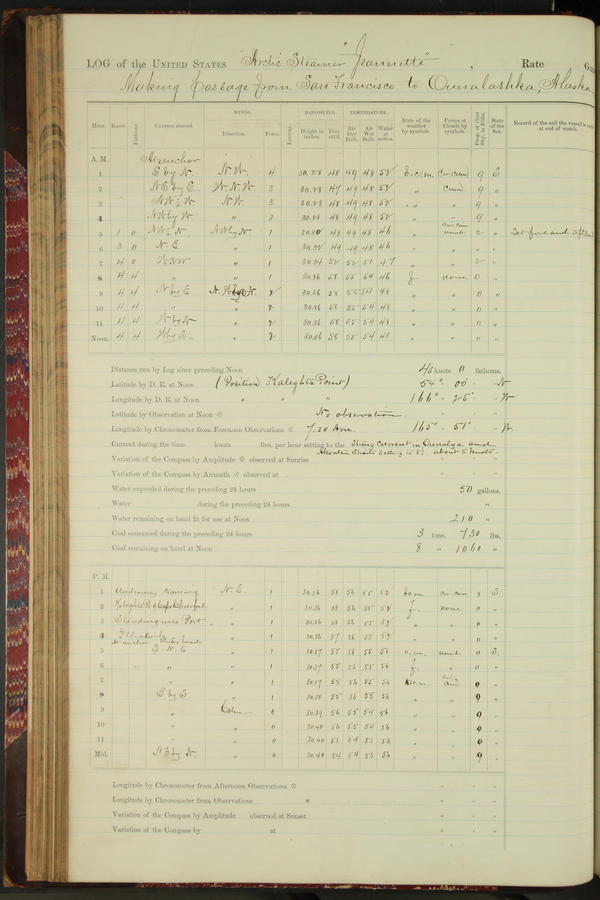 LOG of the UNITED STATES "Arctic Steamer" Jeannette" , Rate
Making passage from San Francisco to Ounalashka, Alaska
WINDS. BAROMETER. TEMPERATURE.
Hour. Knots Fathoms. Courses steered. Direction. Force. Leeway. Height in inches. Ther. att'd. Air Dry Bulb. Air Wet Bulb. Water at surface. State of the weather by symbols. Forms of Clouds by symbols. Prop. of clear Sky, in 10ths. State of the Sea. Record of the sail the vessel is at end of watch.
A. M. At anchor
1 E by N. N.W. 4 30.28 48 49 48 52 b.c.m. Cir cum 9 S
2 N E by E. W.N.W. 3 30.28 47 49 48 52 " cum 9 "
3 N.W. 3 30.28 48 49 48 52 " " 9 "
4 NW by W " 3 30.28 48 49 48 52 " " 9 "
5 1 0 NW by N 1 30.30 48 49 48 46 " cir cum 2 "
6 3 0 N. E. " 1 30.32 49 49 48 46 " " " "
7 4 0 " 1 30.34 52 52 51 47 " " 2 "
8 4 4 " " 1 30.36 58 55 54 46 f none 0 "
9 4 4 N by E 2 30.36 58 55 54 48 " " 0 "
10 4 4 " " 2 30.36 58 55 54 48 " " 0 "
11 4 4 " 2 30.36 58 55 54 48 " " 0 "
Noon. 4 4 " 2 30.36 58 55 54 48 " " 0 "
Distance run by Log since preceding Noon 43 knots 0 fathoms.
Latitude by D. R. at Noon (Position Kaleghta Point) 54° 00' N
Longitude by D. R. at Noon " " " 166° 25' W
Latitude by Observation at Noon No observation.
Longitude by Chronometer from Forenoon Observations 7.30 Am. 165° 51' W.
Current during the time knots fms, per hour setting to the Strong current in Ounalga and
Variation of the Compass by Amplitude observed at Sunrise
Variation of the Compass by Azimuth observed at
Water expended during the preceding 24 hours 50 gallons.
Water during the preceding 24 hours "
Water remaining on hand fit for use at Noon 210 "
Coal consumed during the preceding 24 hours 3 tons. 730 lbs.
Coal remaining on hand at Noon 8 " 1060 "
P. M.
1 N. E. 1 30.36 58 56 55 52 b.c.m. cir cum 8 S.
2 Kaleghta Pt & Cape Cheerful " 1 30.36 58 56 55 52 f. none 0 "
3 Standing into Port " 1 30.36 58 56 55 52 " " 0 "
4 Illiuliuk " 1 30.36 57 56 55 52 " " 0 "
5 E. N. E " 1 30.37 55 56 55 56 o.m. 0 S.
6 " " 1 30.37 55 56 55 56 f. " 0 "
7 " " 1 30.37 55 56 55 56 b.c.m. 9 "
8 E by S " 1 30.38 55 56 55 56 " " 9 "
9 " Calm 0 30.39 56 55 54 56 " " 9 "
10 " " 0 30.40 56 55 54 56 " " 9 "
11 " " 0 30.40 53 54 53 56 " " 9 "
Mid. N E by N. " 0 30.40 54 54 53 56 " " 9 "
Longitude by Chronometer from Afternoon Observations
Longitude by Chronometer from Observations
Variation of the Compass by Amplitude observed at Sunset
Variation of the Compass by at